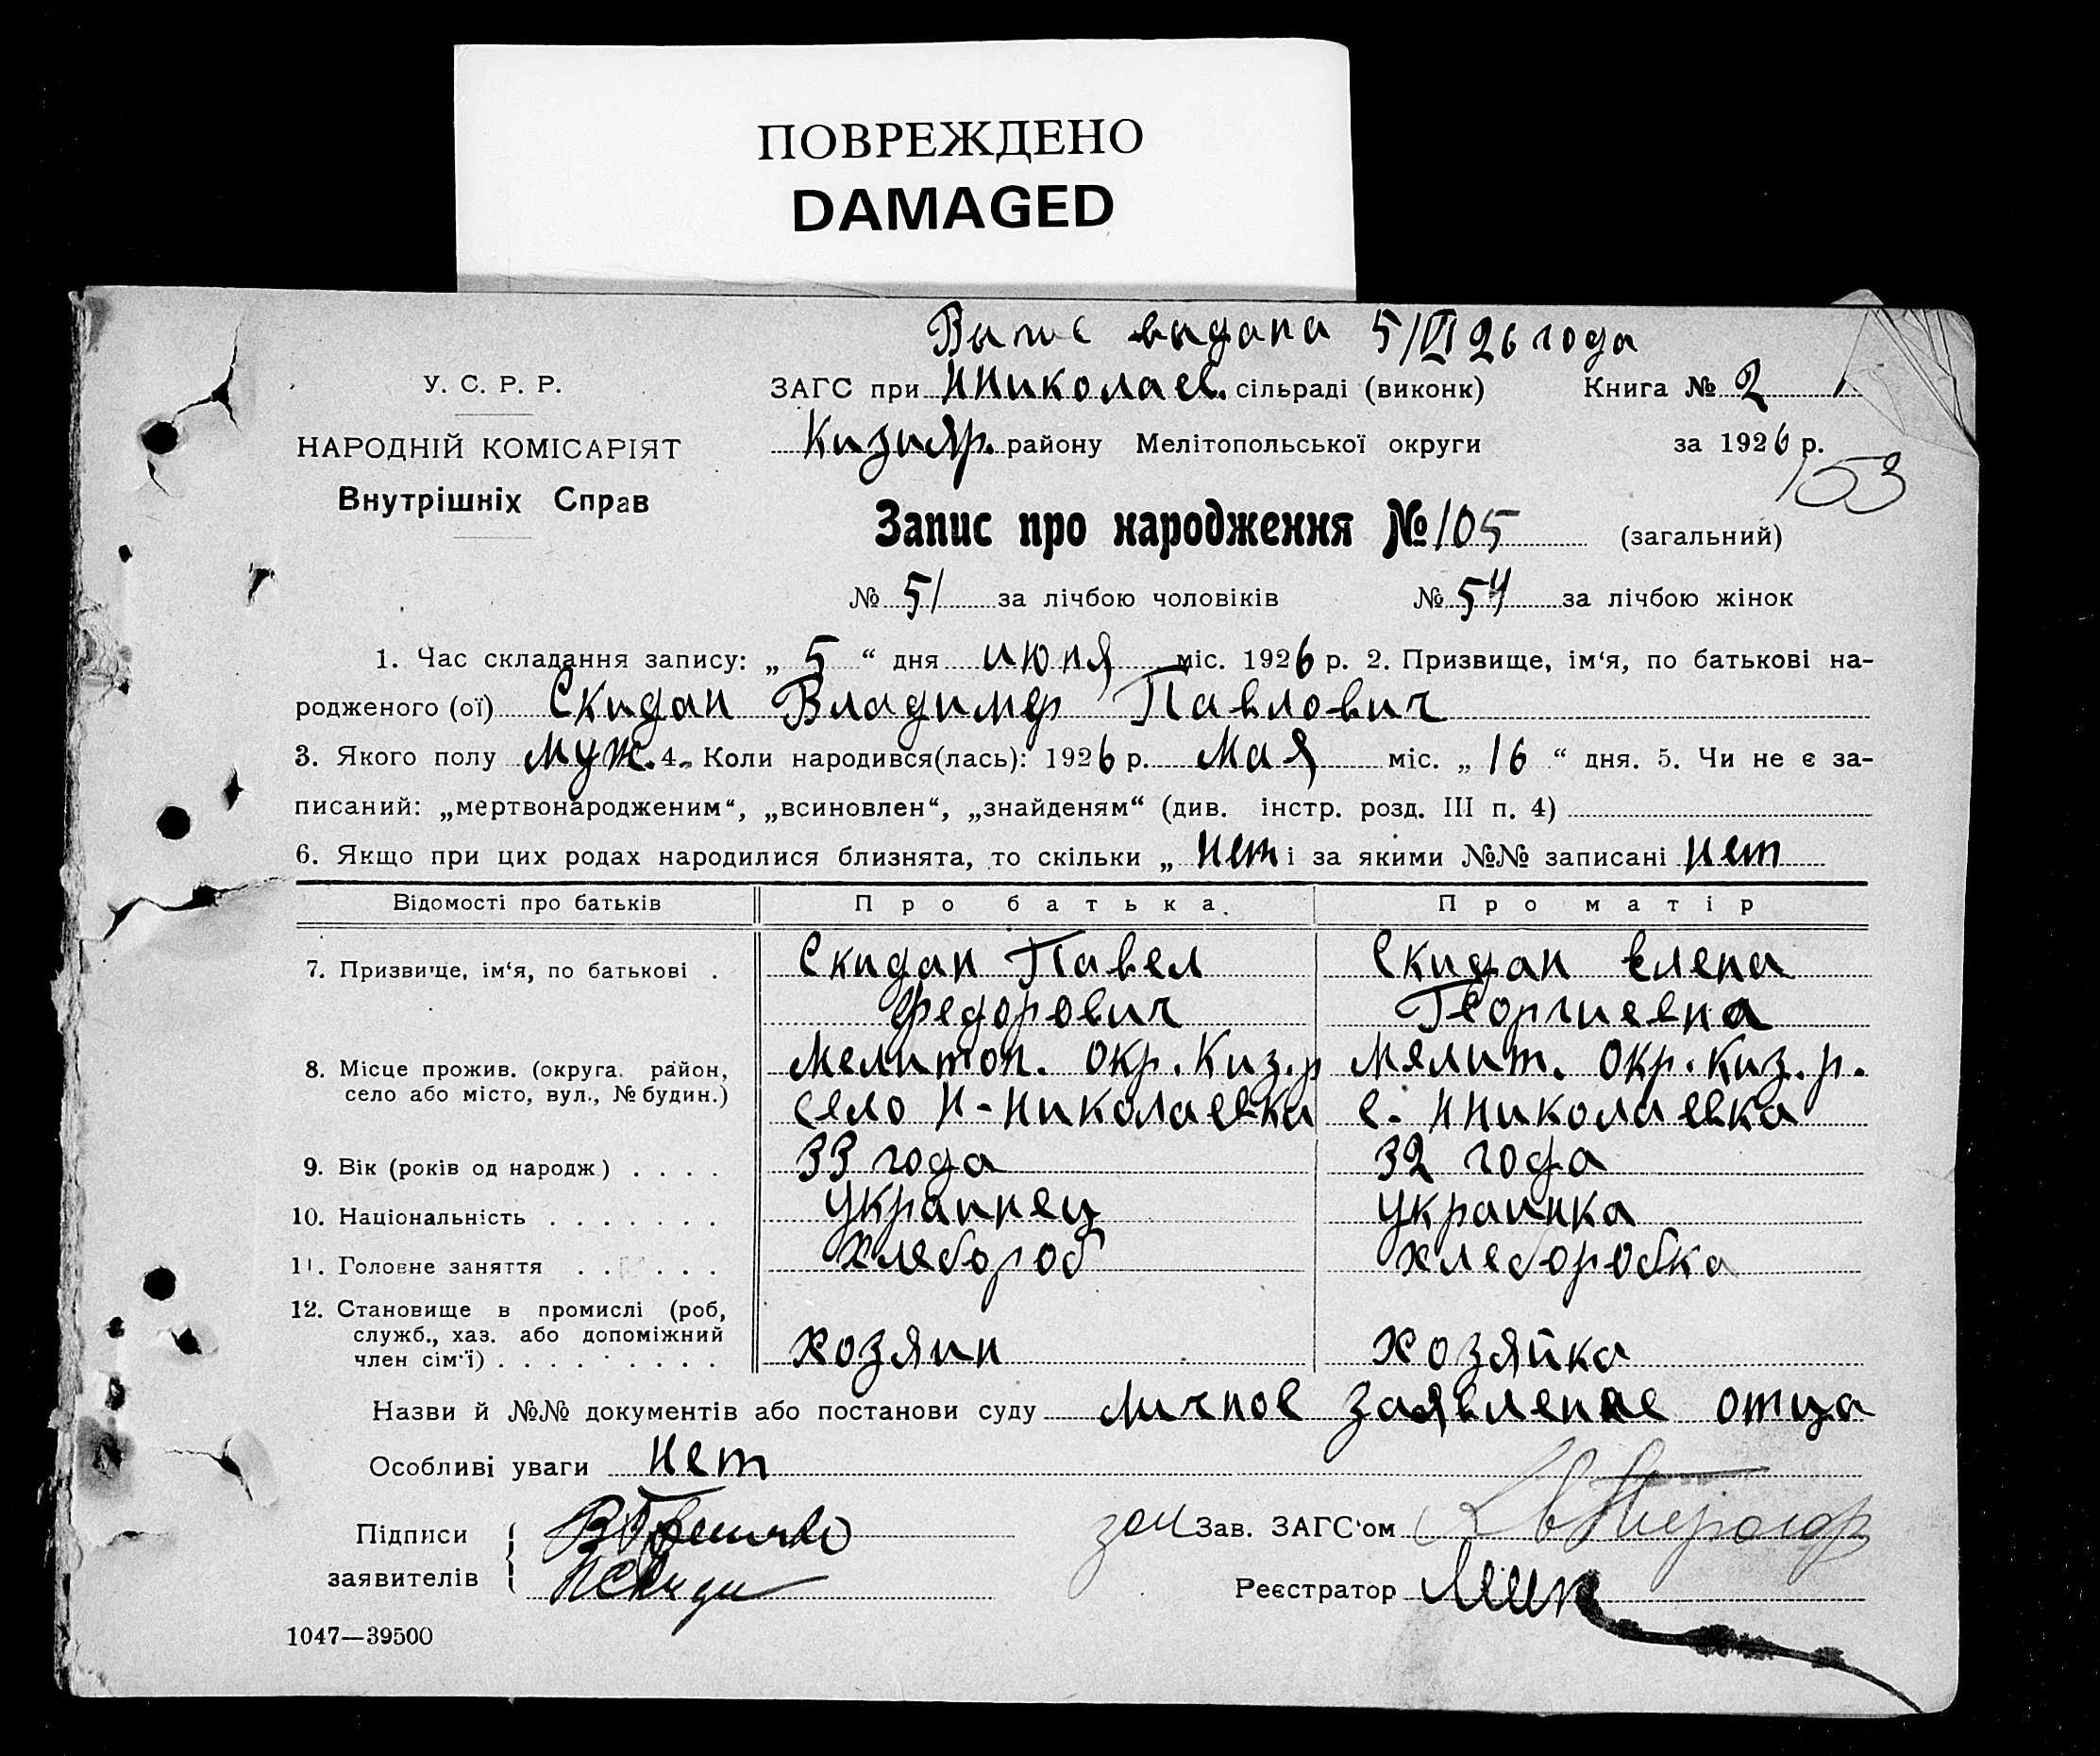 ПОВРЕЖДЕНО
DAMAGED
Выпис выдана 5/VI 26 года
У. С. Р. Р.
ЗАГС при ННиколаев. сільраді (виконк) Книга № 2
НАРОДНІЙ КОМІСАРІЯТ
Кизияр. району Мелітопольської округи за 1926 р.
153
Внутрішніх Справ
Запис про народження № 105 (загальний)
№ 51 за лічбою чоловіків № 54 за лічбою жінок
1. Час складання запису: „ 5 “ дня июня міс. 1926 р. 2. Призвище, ім‘я, по батькові на-
родженого (ої) Скидан Владимер Павлович
3. Якого полу муж. 4. Коли народився(лась): 1926 р. мая міс. „ 16 “ дня. 5. Чи не є за-
писаний: „мертвонародженим“, „всиновлен“, „знайденям“ (див. інстр. розд. III п. 4)
6. Якщо при цих родах народилися близнята, то скільки „ нет і за якими №№ записані нет
Відомості про батьків Про батька. Про матір
7. Призвище, ім‘я, по батькові . Скидан Павел Скидан Елена
Федорович Георгиевна
8. Місце прожив. (округа. район, Мелитоп. окр. Киз. р Мелит. окр. Киз. р.
село або місто, вул., № будин.) село Н-Николаевка с. ННиколаевка
9. Вік (років од народж.) . . . . 33 года 32 года
10. Національність . . . . . . . украинец украинка
11. Головне заняття . . . . . . хлебороб хлеборобка
12. Становище в промислі (роб,
служб., хаз. або допоміжний
член сім‘ї) . . . . . . . . . хозяин хозяйка
Назви й №№ документів або постанови суду личное заявление отца
Особливі уваги нет
Підписи
зам Зав. ЗАГС‘ом
заявителів
Реєстратор
1047—39500